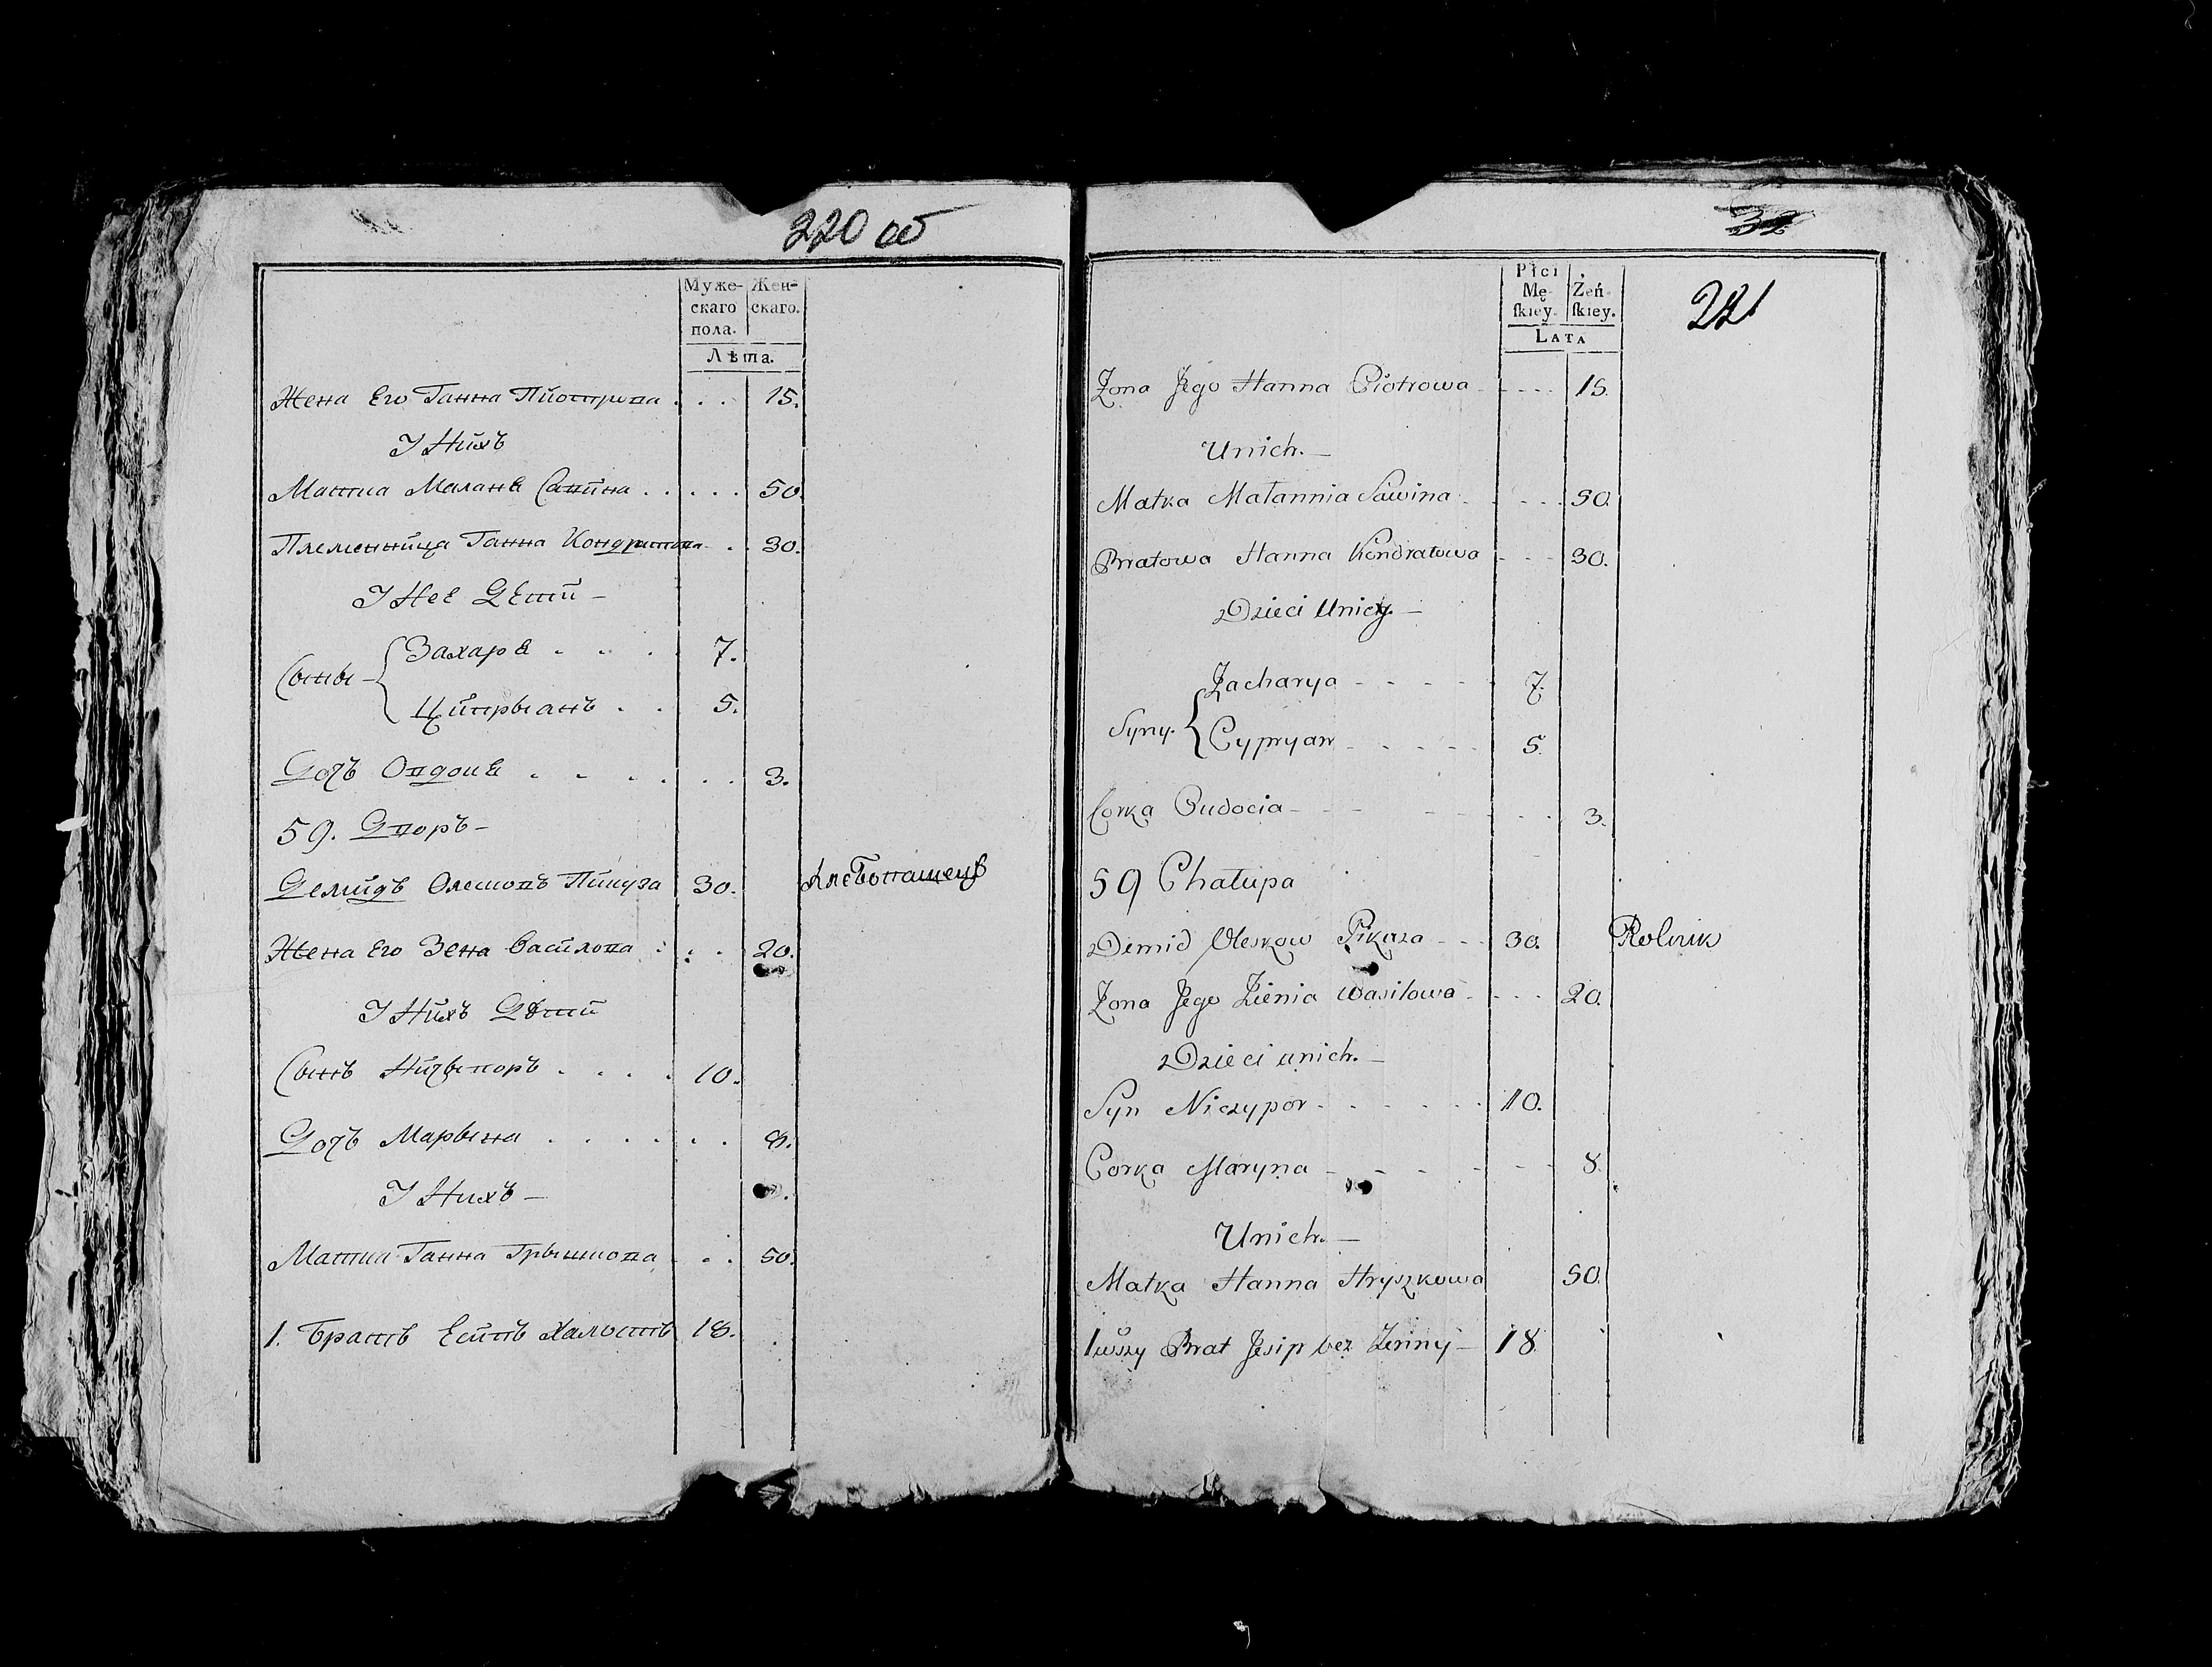 220 об
Муже-
скаго
пола.
Жен-
скаго.
Лѣта.
Жена Его Ганна Піотрова . . . 15.
У Нихъ
Матка Маланѣ Савина . . . . . 50.
Племенница Ганна Кондратова . . 30.
У Неѣ Дѣти –
Сыны –
Захарѣ . . . 7.
Циприанъ . . 5.
Дочъ Овдокѣ . . . . . . 3.
59. Дворъ –
Демидъ Олесковъ Пикуза 30. Хлебопашецъ
Жена Его Зена Василова . . . 20.
У Нихъ Дѣти
Сынъ Ничыпоръ . . . . 10.
Дочъ Марына . . . . . . . 8.
У Нихъ –
Матка Ганна Грышкова . . . 50.
1. Братъ Есипъ Халостъ 18.
32
221
Płci
Mę-
ſkiey.
Żeń-
ſkiey.
LATA
Zona Jego Hanna Piotrowa - - - - 15.
Unich. –
Matka Matannia Sawina - - - - 50.
Bratowa Hanna Kondratowa - - - 30.
Dzieci Unicy. –
Syny.
Zacharya - - - - - 7.
Cypryan - - - - - 5.
Corka Oudocia - - - - - - - 3.
59 Chałupa
Demid Oleskow Pikuza - - 30. Rolnik
Zona Jego Zienia Wasilowa - - - - 20.
Dzieci unich. –
Syn Niczypor - - - - - - 10.
Corka Maryna - - - - - - 8.
Unich. –
Matka Hanna Hryszkowa 50.
1wszy Brat Jesip bez Zeniny – 18.